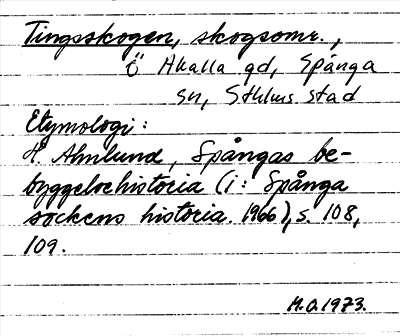 Tingsskogen, skogsomr.,
Ö Akalla gd, Spånga
sn, Sthlms stad
Etymologi:
H. Almlund, Spångas be-
byggelsehistoria (i: Spånga
sockens historia. 1966), s. 108,
109.
M.O. 1973.